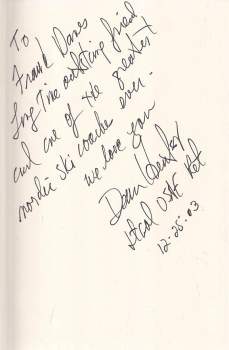 To
Frank Danes
long time outstanding friend
and one of the greatest
nordic ski coaches ever.
we love you
Dean
Ltcol USAF Ret
12-25-03